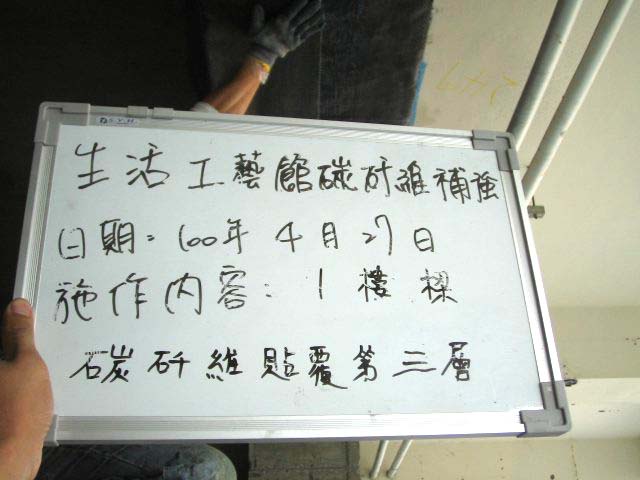 S.Y.H.
生活工藝館碳矸維補強
日期：100年4月27日
施作內容：1樓樑
碳矸維貼覆第三層